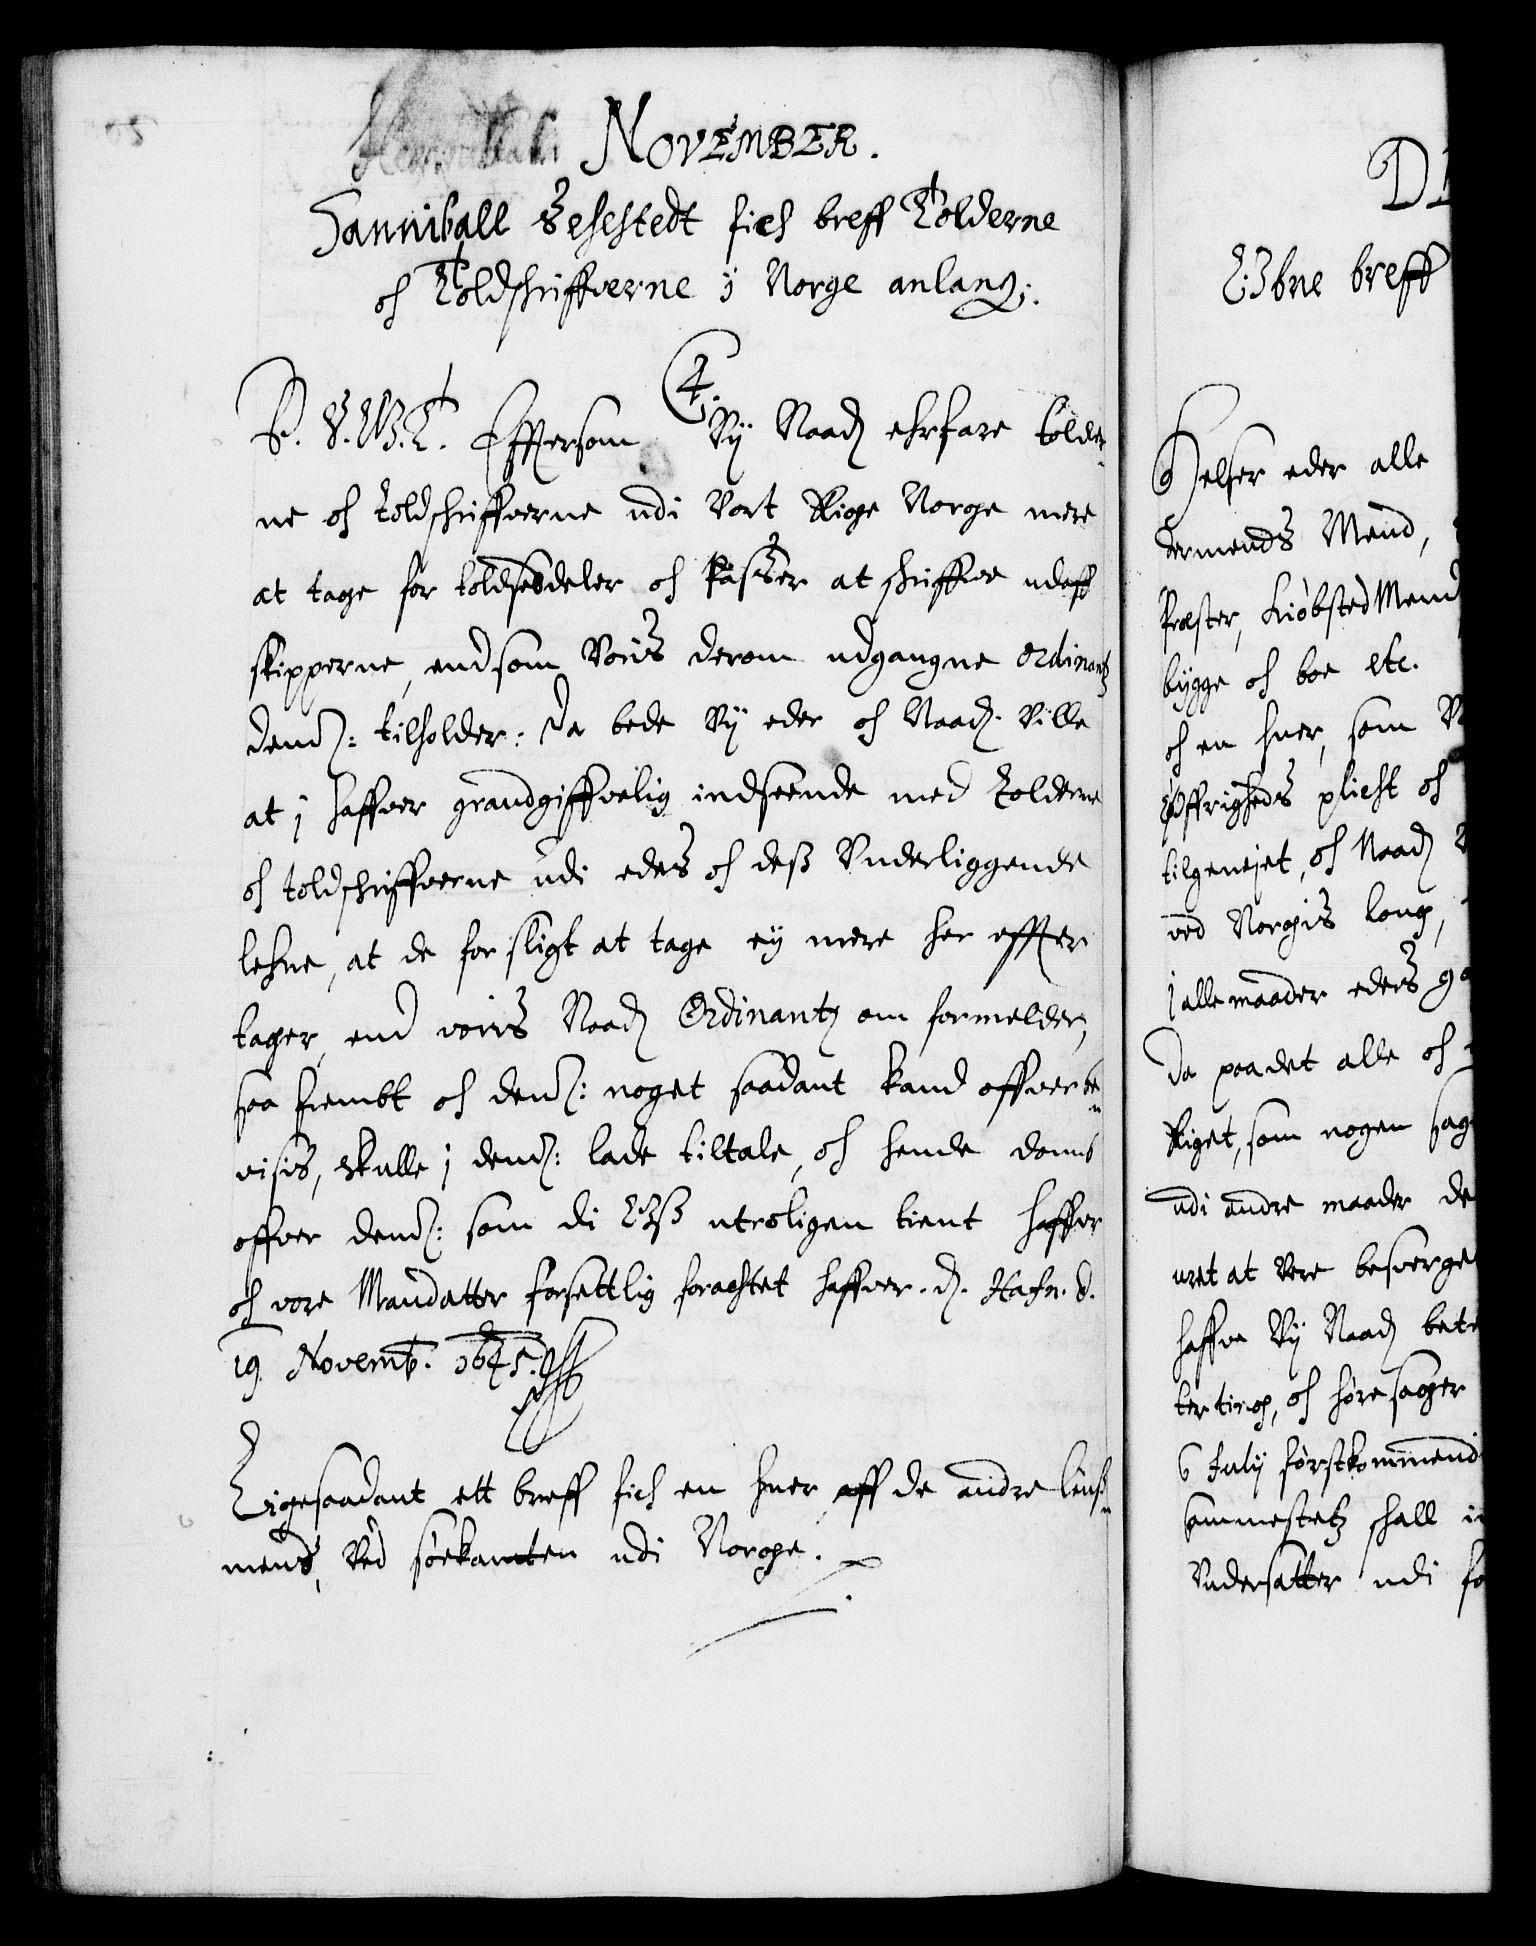 November.
Hanniball Sehestedt fich breff Tolderne
och Toldschriffverne y Norge anlang:
P. G. W. T. Effterson Vy Naad: ehrfare tolder-
ne och toldschriffverne udi Vort Rige Norge mere
at tage for toldseddeler och Passer at schriffve udaff
skipperne, end som Voris derom udgangne Ordinantz
dend: tilholder: Da bede Vy eder och Naad: Ville
at j haffver grandgiffvelig indseende med tolderne
och toldschriffverne udi eders och desz Underliggende
lehne, at de for sligt at tage ey mere her effter
tager, end voris Naad: Ordinantz om formelder,
saa frembt och dend: noget saadant kand offverbe-
visis, skulle j dend: lade tiltale, och hende domb
offver dend: som di Osz utroligen tient haffver
och vore Mandatter forsettlig forachtet haffver. D. Hafn. d.
19. Novemb. 1645.
Ligesaadant ett breff fich en huer aff de andre lens-
mend, Ved søekanten udi Norge.
D
Obne breff
Helser eder alle
dermends Mend,
Prester, Kiøbsted Mend
bygge och boe etc.
och en huer, som
Øffrigheds plicht och
tilgenejet, och Naad:
ved Norgis loug,
j alle maader eders
Da paa det alle och
Riget, som nogen sag
udi andre maader de
uret at Vere besverge
haffve Vy Naad: bete
ter ting, och høre sager
6 July førstkommend
sammestetz schall
Undersatter udi